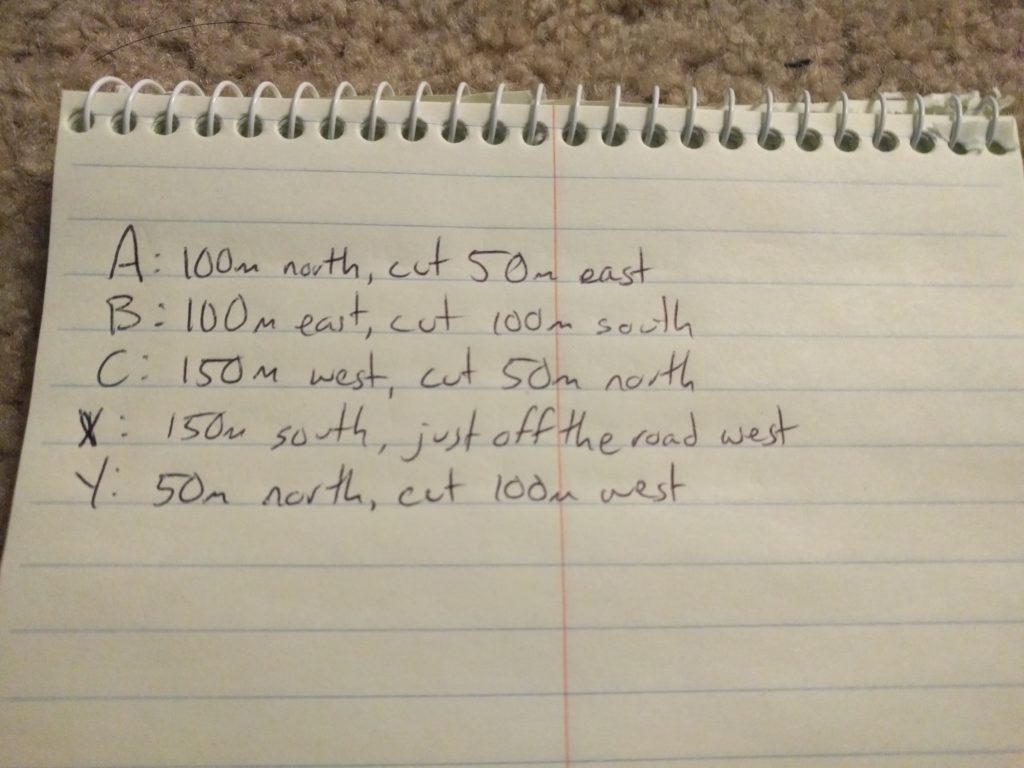 A: 100m north, cut 50m east
B: 100m east, cut 100m south
C: 150m west, cut 50m north
X: 150m south, just off the road west
Y: 50m north, cut 100m west